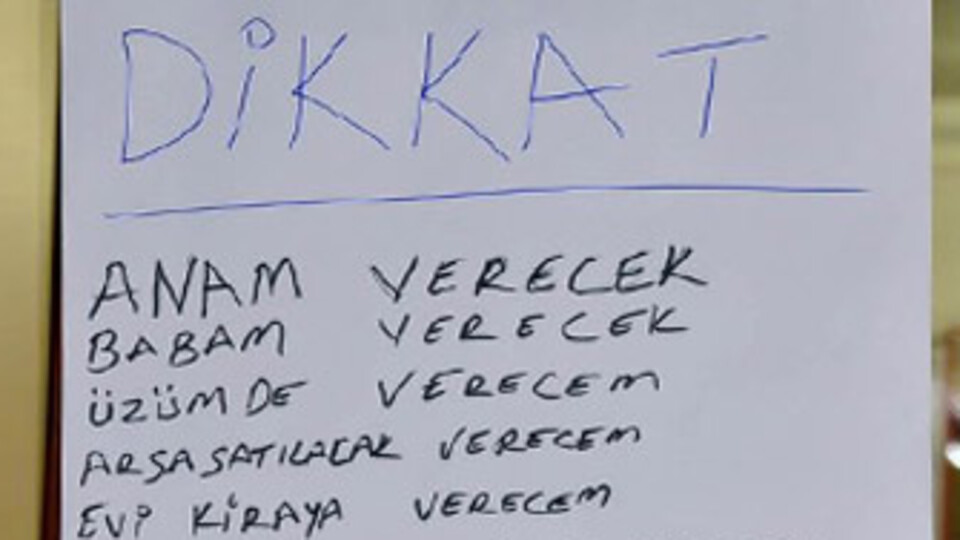 DİKKAT
ANAM VERECEK
BABAM VERECEK
ÜZÜMDE VERECEM
ARSA SATILACAK VERECEM
EVİ KİRAYA VERECEM